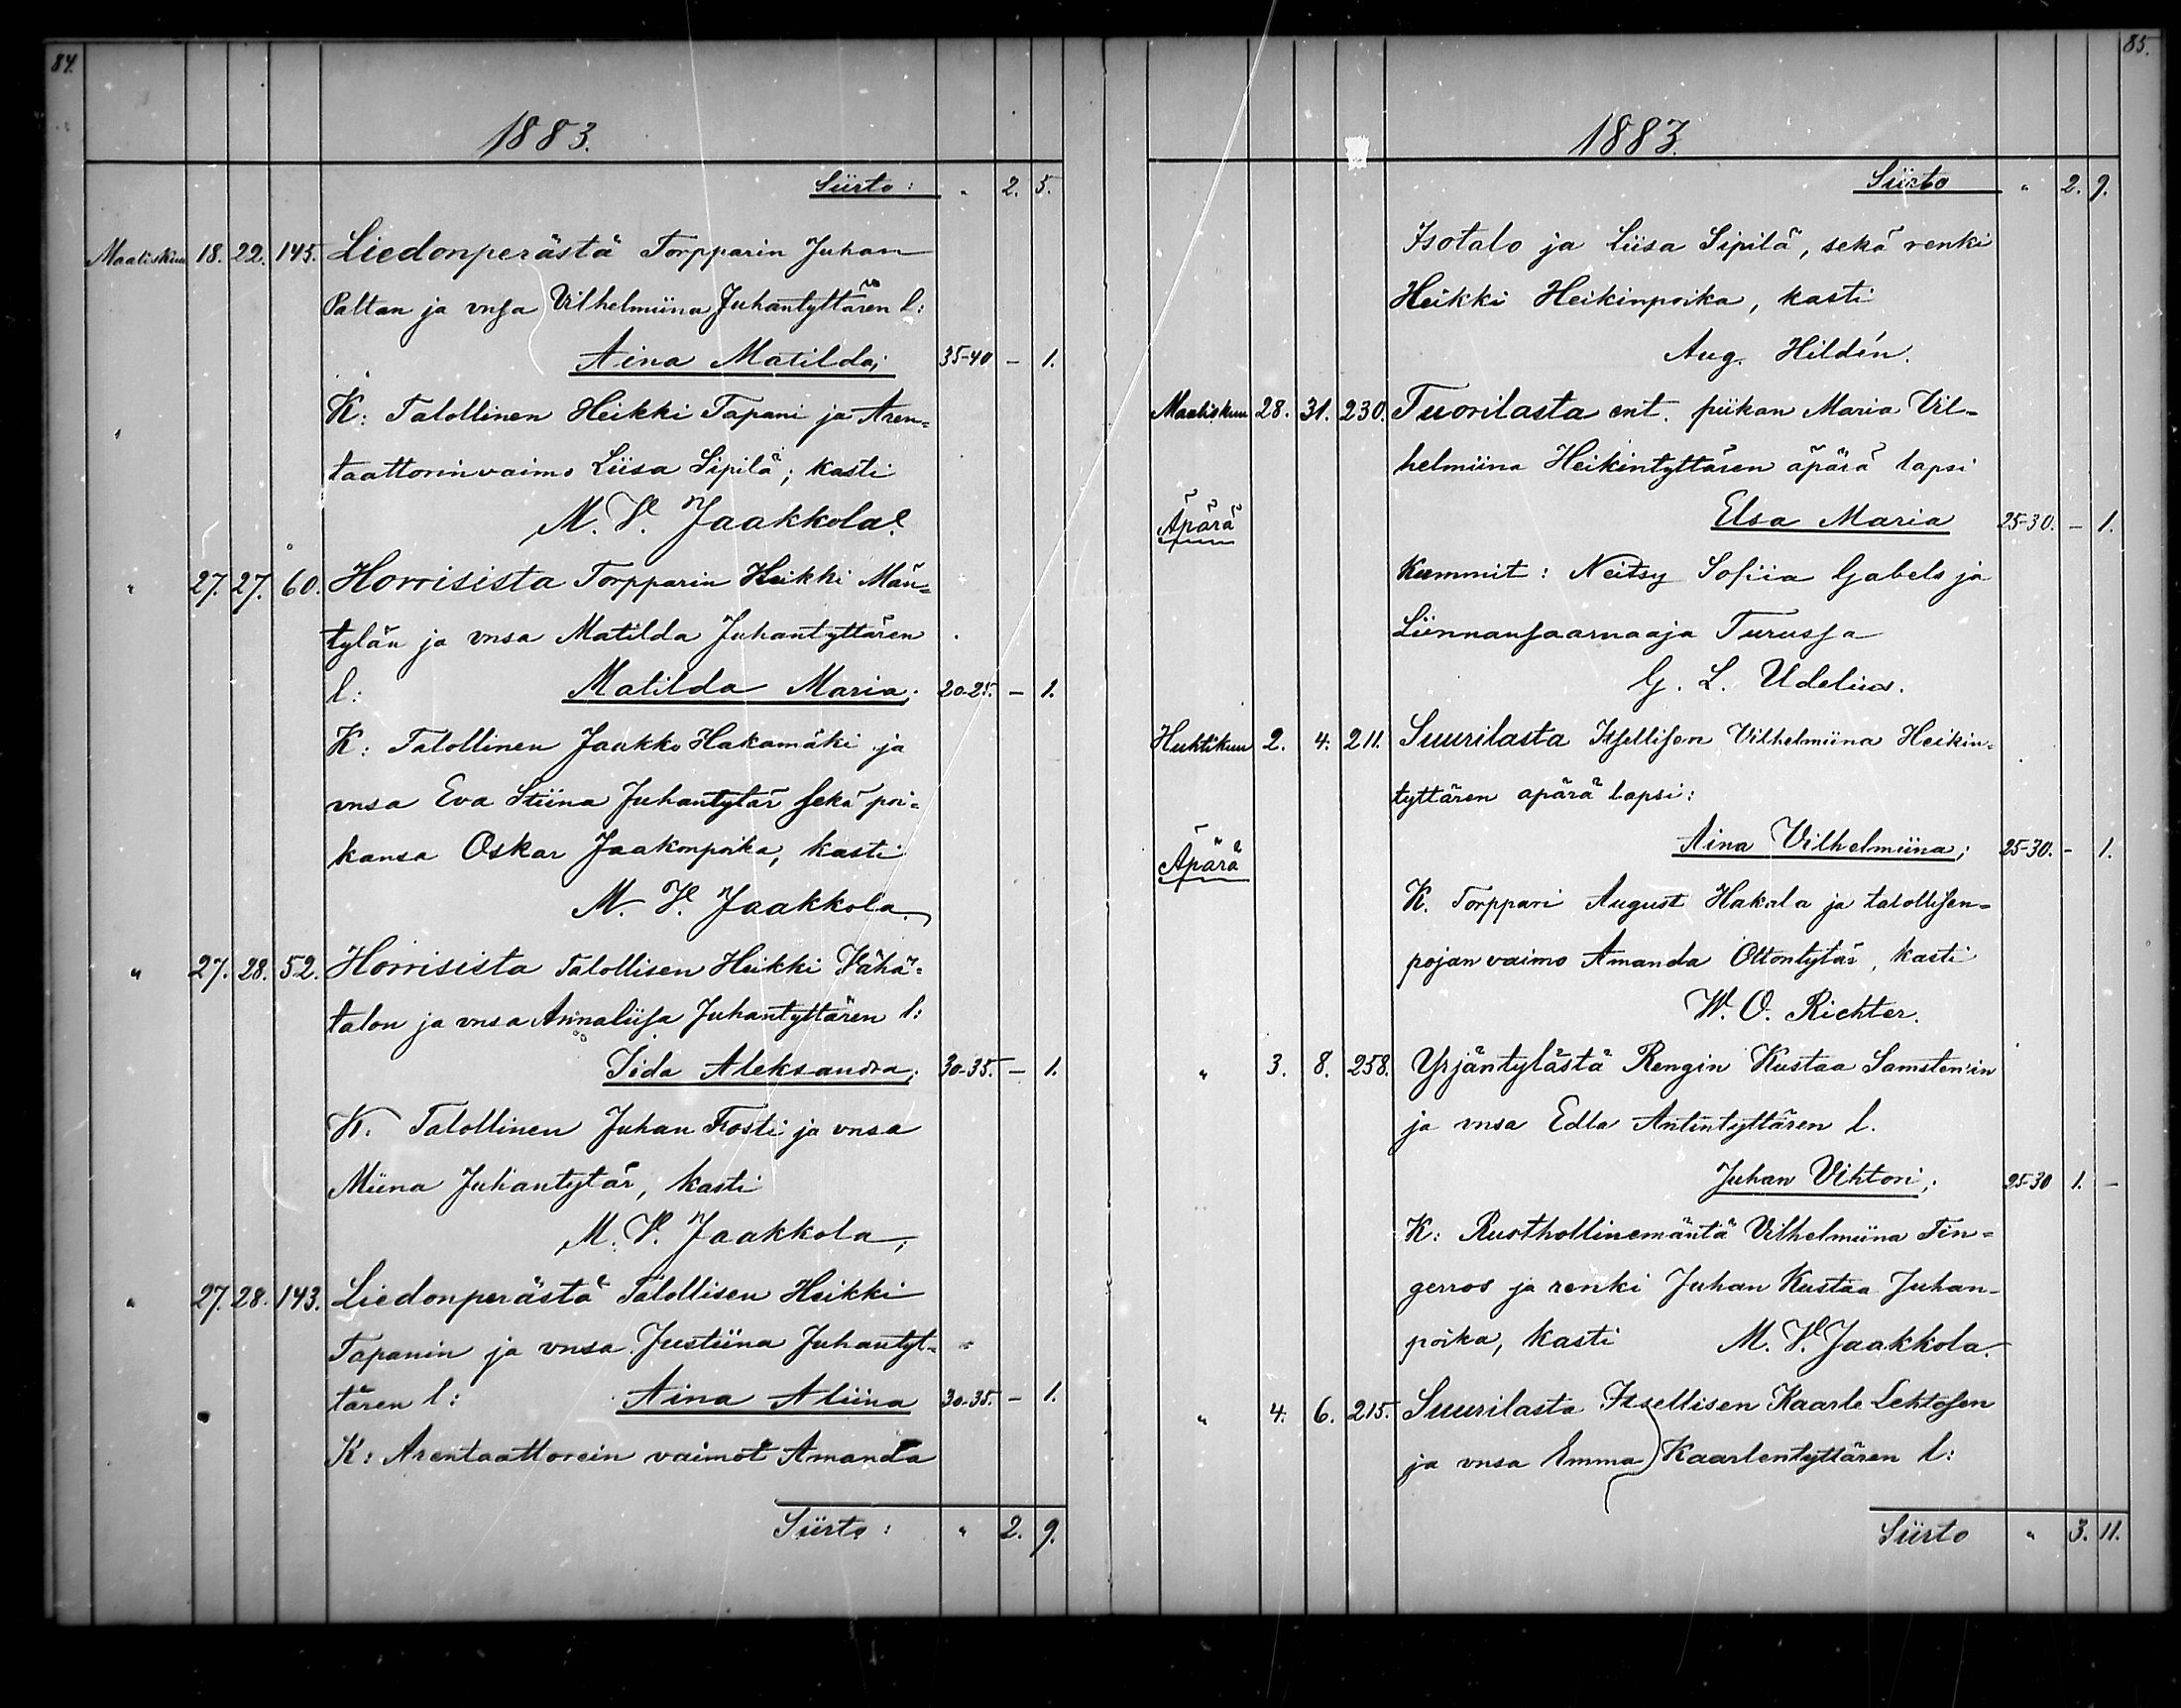 84.
1883.
Siirto: " 2. 5.
Maaliskuu 18. 22. 145. Liedonperästä Torpparin Juhan
Paltan ja vnsa Vilhelmiina Juhantyttären l:
Aina Matilda; 35-40 - 1.
K: Talollinen Heikki Tapani ja Aren=
taattorinvaimo Liisa Sipilä; kasti
M. V. Jaakkola.
" 27. 27. 60. Horrisista Torpparin Heikki Män=
tylän ja vnsa Matilda Juhantyttären
l: Matilda Maria; 20-25. - 1.
K: Talollinen Jaakko Hakamäki ja
vnsa Eva Stiina Juhantytär sekä poi=
kansa Oskar Jaakonpoika, kasti
M. V. Jaakkola.
" 27. 28. 52. Horrisista Talollisen Heikki Vähä=
talon ja vnsa Annaliisa Juhantyttären l:
Iida Aleksandra; 30-35. - 1.
K. Talollinen Juhan Frosti ja vnsa
Miina Juhantytär, kasti
M. V. Jaakkola,
" 27. 28. 143. Liedonperästä Talollisen Heikki
Tapanin ja vnsa Justiina Juhantyt=
tären l: Aina Aliina 30-35. - 1.
K: Arentaattorein vaimot Amanda
Siirto: " 2. 9.
85.
1883.
Siirto " 2. 9.
Isotalo ja Liisa Sipilä, sekä renki
Heikki Heikinpoika, kasti
Aug. Hildén.
Maaliskuu 28. 31. 230. Tuorilasta ent. piikan Maria Vil=
helmiina Heikintyttären äpärä lapsi
Äpärä Elsa Maria 25-30. - 1.
Kummit: Neitsy Sofiia Gabels ja
Linnansaarnaaja Turussa
G. L. Udelius.
Huhtikuu 2. 4. 211. Suurilasta Itsellisen Vilhelmiina Heikin=
tyttären äpärä lapsi:
Äpärä Aina Vilhelmiina; 25-30. - 1.
K. Torppari August Hakala ja talollisen=
pojan vaimo Amanda Ottontytär, kasti
W. O. Richter.
" 3. 8. 258. Yrjäntylästä Rengin Kustaa Samsten'in
ja vnsa Edla Antintyttären l.
Juhan Vihtori; 25-30 1. -
K: Rusthollinemäntä Vilhelmiina Fin=
gerros ja renki Juhan Kustaa Juhan=
poika, kasti M. V. Jaakkola.
" 4. 6. 215. Suurilasta Itsellisen Kaarle Lehtosen
ja vnsa Emma Kaarlentyttären l:
Siirto " 3. 11.